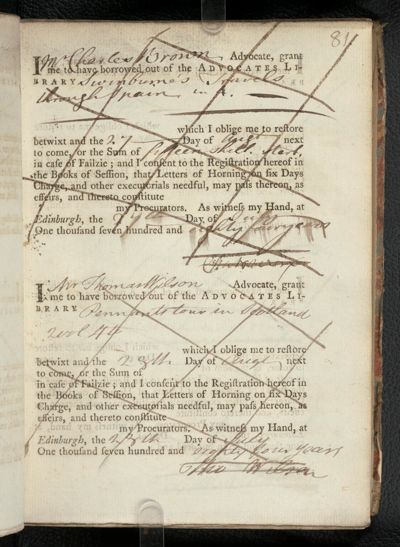 81
I Mr Charles Brown, Advocate, grant
me to have borrowed out of the ADVOCATES LI-
BRARY Swinburne's Travels
through Spain in 4.
which I oblige me to restore
betwixt and the 27 Day of Augt next
to come, or the Sum of Fifteen Shill. Sterl.
in case of Failzie; and I consent to the Registration hereof in
the Books of Session, that Letters of Horning on six Days
Charge, and other executorials needful, may pass thereon, as
effeirs, and thereto constitute
my Procurators. As witness my Hand, at
Edinburgh, the Day of July
One thousand seven hundred and eighty four years
I Mr Thomas Wilson Advocate, grant
me to have borrowed out of the ADVOCATES LI-
BRARY Pennants tour in Scotland
2 vol. 4to
which I oblige me to restore
betwixt and the 28th. Day of Augt next
to come, or the Sum of
in case of Failzie; and I consent to the Registration hereof in
the Books of Session, that Letters of Horning on six Days
Charge, and other executorials needful, may pass hereon, as
effeirs, and thereto constitute
my Procurators. As witness my Hand, at
Edinburgh, the 28th Day of July
One thousand seven hundred and eighty four years
Tho Wilson